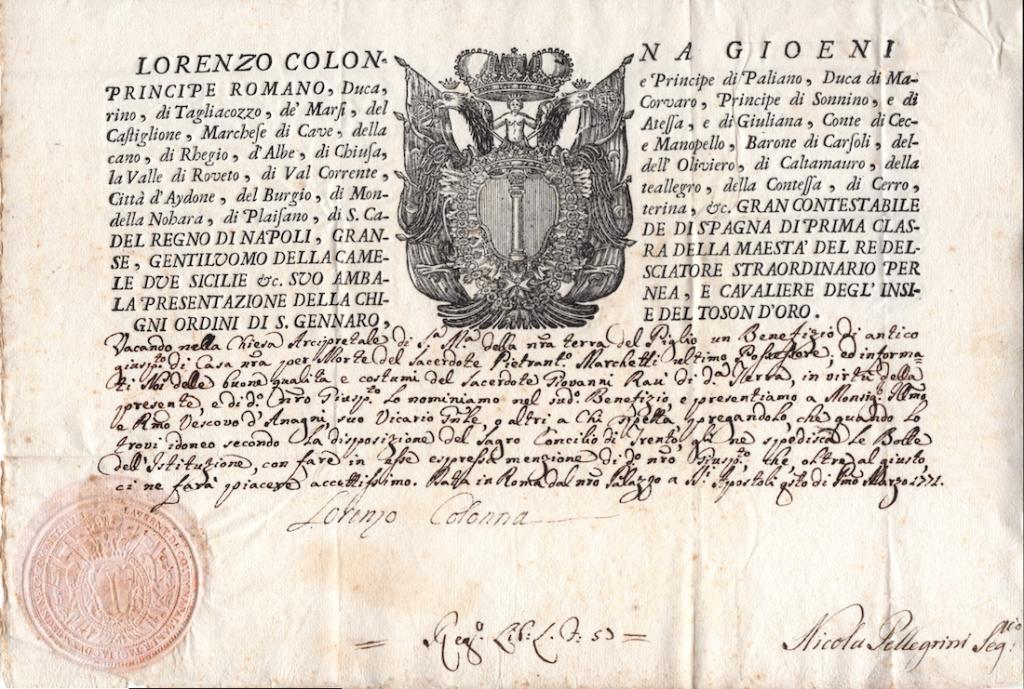 LORENZO COLON- NA GIOENI
PRINCIPE ROMANO, Duca, e Principe di Paliano, Duca di Ma-
rino, di Tagliacozzo, de' Marsi, del Corvaro, Principe di Sonnino, e di
Castiglione, Marchese di Cave, della Atessa, e di Giuliana, Conte di Cec-
cano, di Rhegio, d'Albe, di Chiusa, e Manopello, Barone di Carsoli, del-
la Valle di Roveto, di Val Corrente, dell' Oliviero, di Caltamauro, della
Città d'Aydone, del Burgio, di Mon- teallegro, della Contessa, di Cerro,
della Nohara, di Plaisano, di S. Ca- terina, &c. GRAN CONTESTABILE
DEL REGNO DI NAPOLI, GRAN- DE DI SPAGNA DI PRIMA CLAS-
SE, GENTILUOMO DELLA CAME- RA DELLA MAESTA' DEL RE DEL-
LE DUE SICILIE &c. SUO AMBA- SCIATORE STRAORDINARIO PER
LA PRESENTAZIONE DELLA CHI- NEA, E CAVALIERE DEGL' INSI-
GNI ORDINI DI S. GENNARO, E DEL TOSON D'ORO.
Vacando nella Chiesa Arcipretale di S.a M.a della nrã terra del Piglio un Benefizio di antico
giusp.to di Casa nrã per Morte del Sacerdote Pietrant.o Marchetti ultimo Possessore, ed informa-
ti Noi delle buone qualità e costumi del Sacerdote Giovanni Rau di d.a Terra, in virtù della
presente, e di d.o nrõ Giusp.to Lo nominiamo nel sud.o Benefizio, e presentiamo a Monsig.r Illmo
e Rmo Vescovo d'Anagni, suo Vicario Gnle, o altri a Chi spetta, pregandolo, che quando Lo
trovi idoneo secondo La disposizione del Sagro Concilio di Trento, ne spedisca Le Bolle
dell'Istituzione, con fare in esse espressa menzione di d.o nrõ Giusp.to, che oltre al giusto,
ci ne farà piacere accettissimo. Data in Roma dal nrõ Palazzo a SS. Apostoli di Pmo Marzo 1771.
Lorenzo Colonna
Reg.o Lib. L. f. 53
Nicola Pellegrini Seg.rio